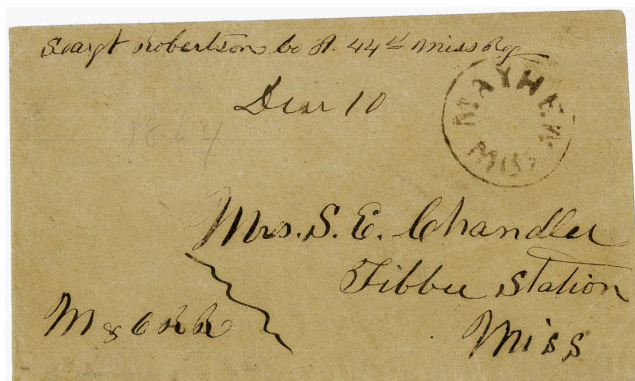 Seargt Robertson Co A. 44th Miss Reg
Due 10
MAYHEW
MISS
1864
Mrs. S. E. Chandler
Tibbee Station
Miss
M & O R R